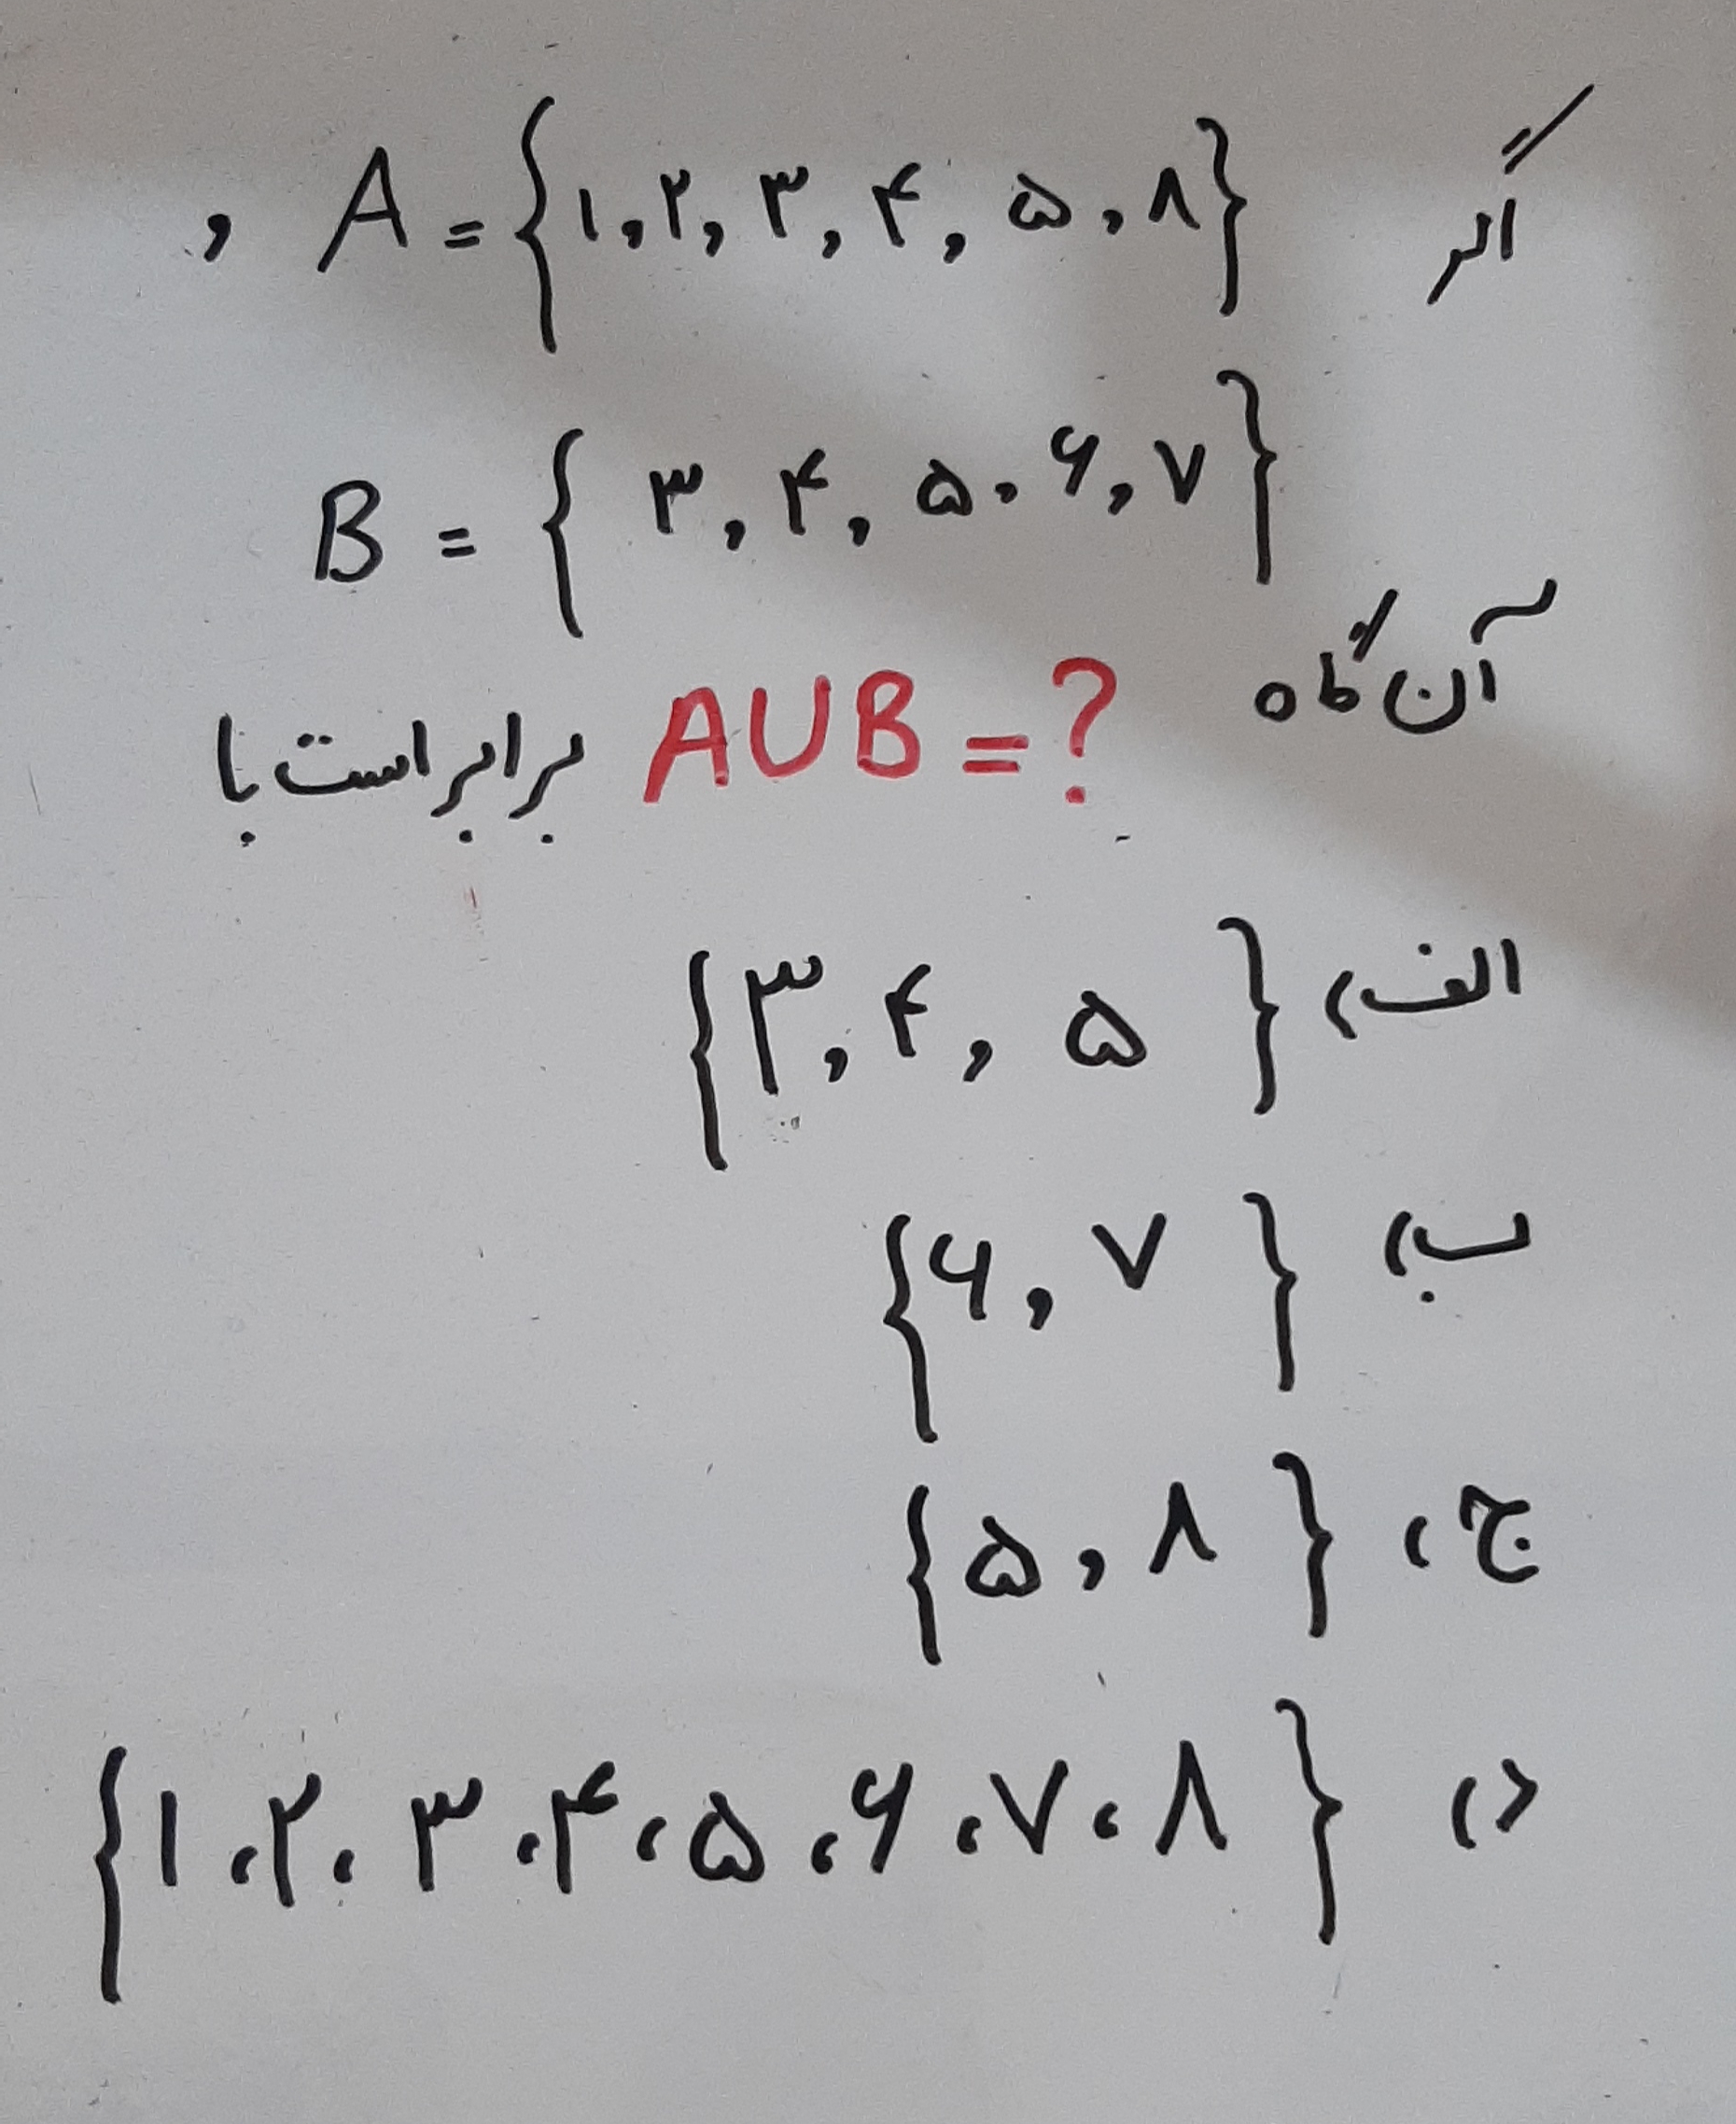 اگر A = {۱, ۲, ۳, ۴, ۵, ۸} ,
B = {۳, ۴, ۵, ۶, ۷}
آن گاه A∪B = ? برابر است با
الف) {۳, ۴, ۵}
ب) {۶, ۷}
ج) {۵, ۸}
د) {۱، ۲، ۳، ۴، ۵، ۶، ۷، ۸}